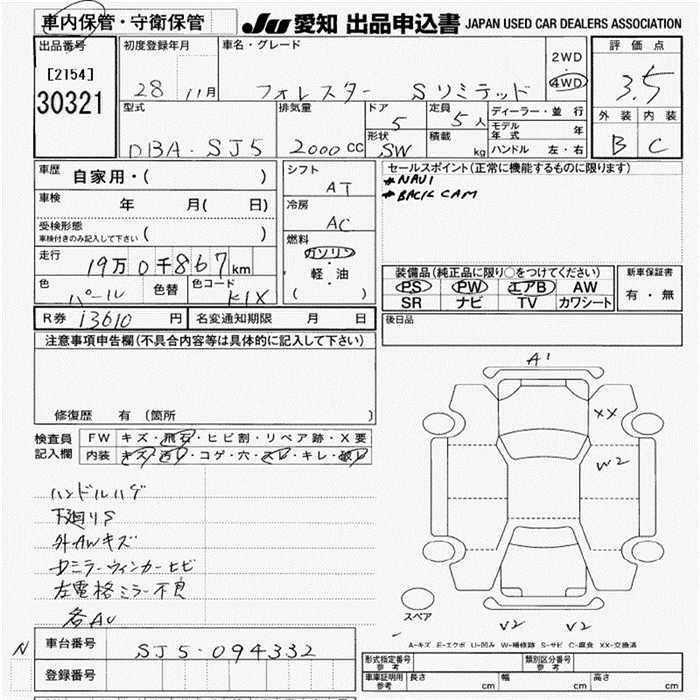 車内保管・守衛保管 JU 愛知 出品申込書 JAPAN USED CAR DEALERS ASSOCIATION
出品番号 初度登録年月 車名・グレード 2WD 評価点
[2154] 28 11月 フォレスター Sリミテッド 4WD 3.5
30321 型式 排気量 ドア 定員 ディーラー・並行 外装 内装
5 5人 モデル年式 年
DBA・SJ5 2000cc 形状 SW 積載 kg ハンドル 左・右 B C
車歴 自家用・( ) シフト AT セールスポイント(正常に機能するものに限ります)
#NAVI
車検 年 月( 日) 冷房 AC #BACK CAM
受検形態
車検付きのみ記入して下さい ( ) 燃料
走行 19万0千867km ガソリン・軽・油 ( )
装備品(純正品に限り○をつけてください) 新車保証書
色 パール 色替 色コード K1X PS PW エアB AW 有・無
SR ナビ TV カワシート
R券 13610円 名変通知期限 月 日 後日品
注意事項申告欄(不具合内容等は具体的に記入して下さい)
修復歴 有 〔箇所 〕
検査員記入欄 FW キズ・飛石・ヒビ割・リペア跡・X要
内装 キズ・汚レ・コゲ・穴・スレ・キレ・破レ
A1
XX
W2
ハンドルハゲ
下廻りS
外AWキズ
Dミラーウィンカーヒビ
左電格ミラー不良
各AU
スペア
V2 V2
A=キズ E=エクボ U=凹み W=補修跡 S=サビ C=腐食 XX=交換済
N 車台番号 SJ5-094332
登録番号
型式指定番号 参考 類別区分番号 参考
車庫証明用 参考 長さ cm 幅 cm 高さ cm